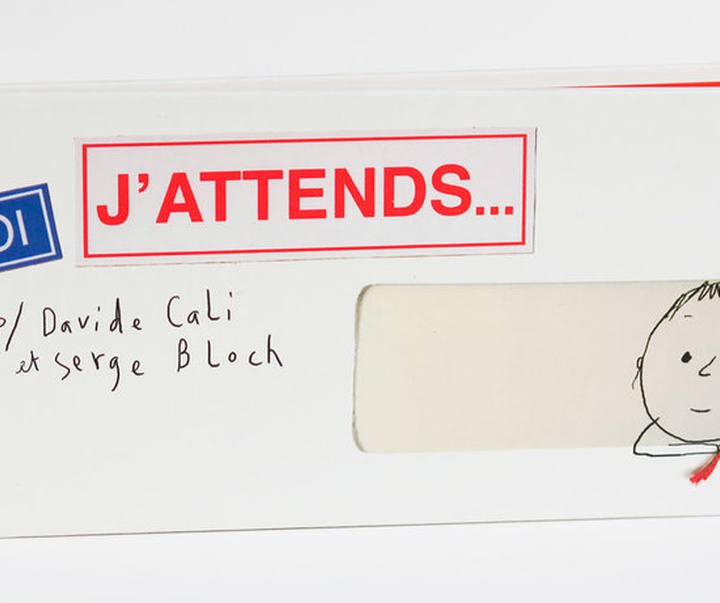 J'ATTENDS...
Davide Cali
et Serge Bloch